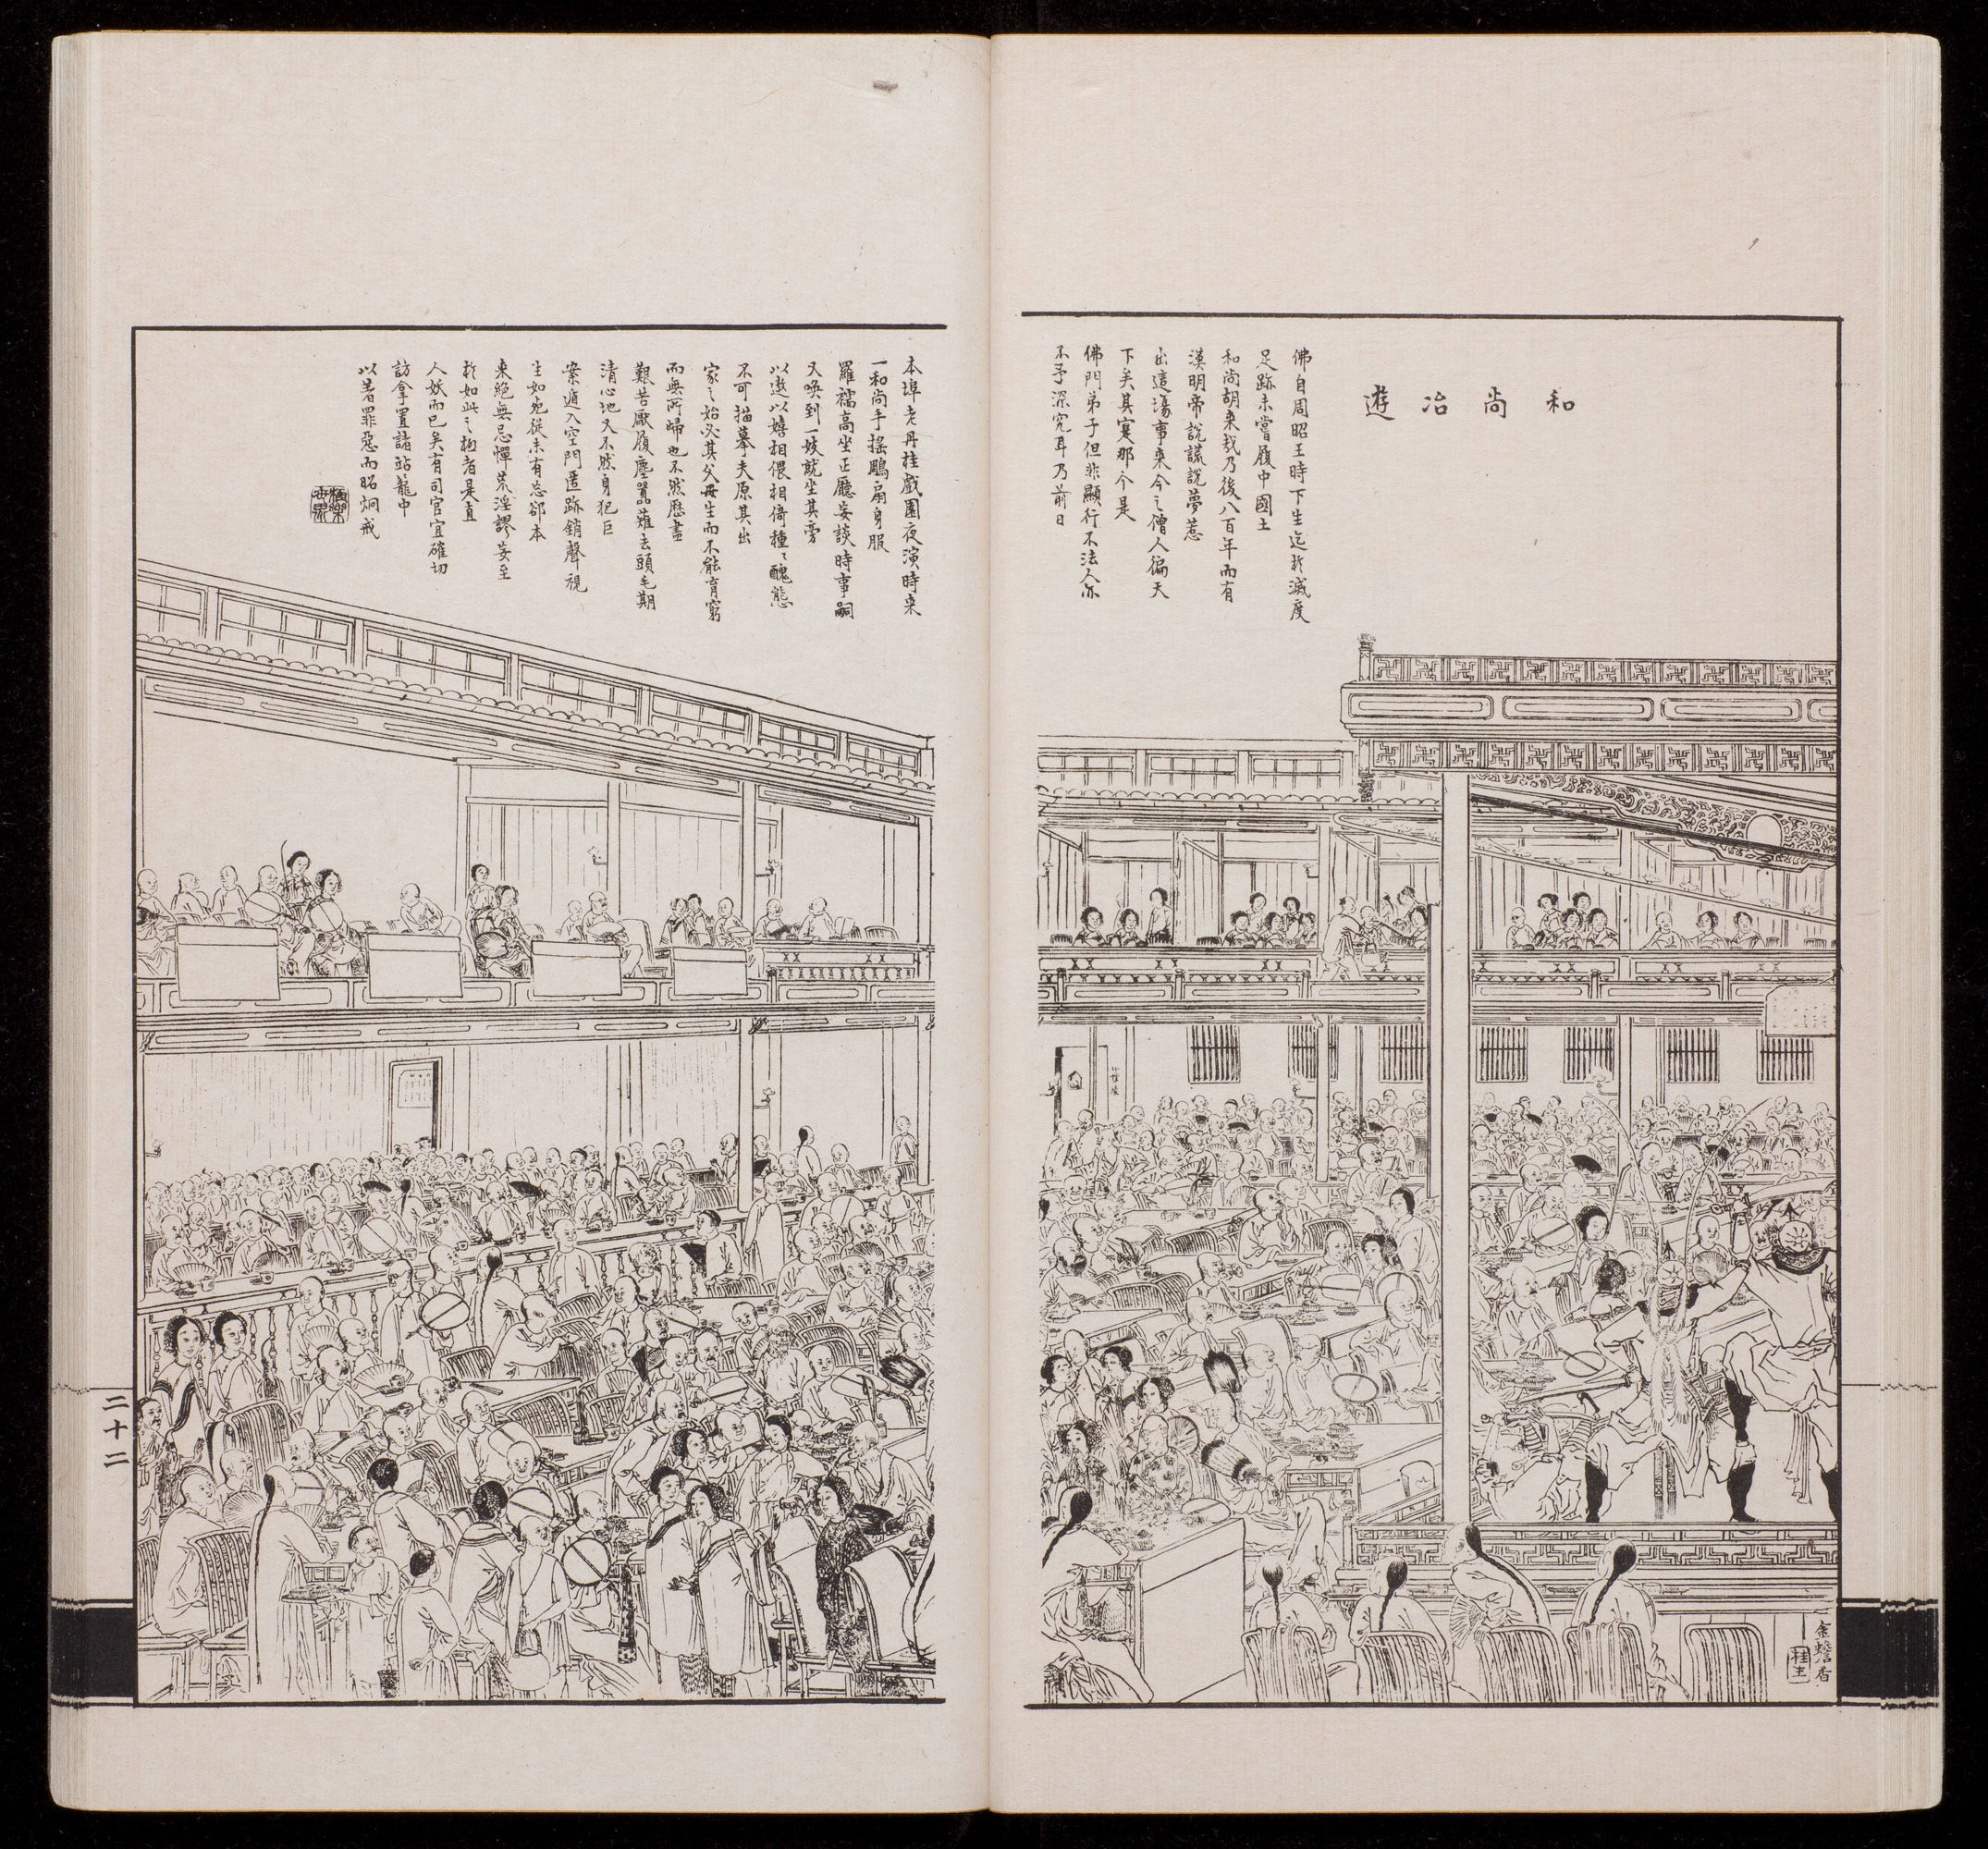 和尚冶遊
佛自周昭王時下生迄於滅度
足跡未嘗履中國土
和尚胡来哉乃後八百年而有
漢明帝說謊說夢惹
出這場事来今之僧人徧天
下矣其寔那个是
佛門弟子但非顯行不法人亦
不予深究耳乃前日
本埠老丹桂戲園夜演時来
一和尚手搖鵰扇身服
羅襦高坐正廳妄談時事嗣
又喚到一妓就坐其旁
以遨以嬉相偎相倚種〻醜態
不可描摹夫原其出
家之始必其父母生而不能育窮
而無所歸也不然歷盡
艱苦厭履塵囂薙去頭毛期
清心地又不然身犯巨
案遁入空門匿跡銷聲視
生如死從未有忘卻本
来絕無忌憚荒淫謬妄至
於如此之極者是直
人妖而已矣有司官宜確切
訪拿置諸站籠中
以著罪惡而昭炯戒
金蟾香
桂生
二十二